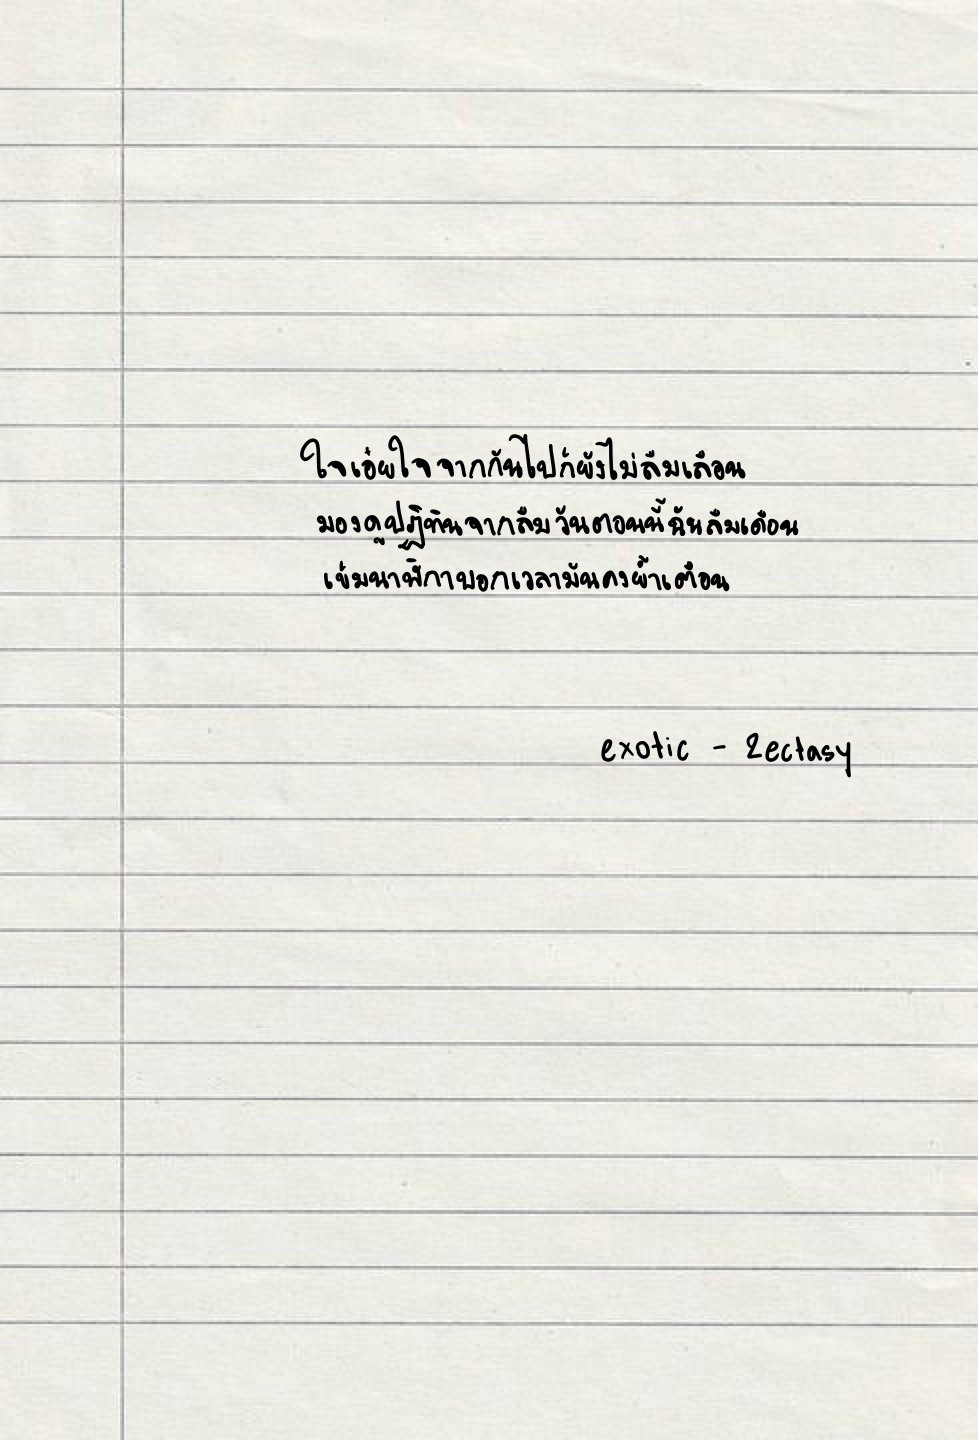 ใจเอ๋ยใจจากกันไปก็ยังไม่ลืมเลือน
มองดูปฏิทินจากลืมวันตอนนี้ฉันลืมเดือน
เข็มนาฬิกาบอกเวลามันคงย้ำเตือน
exotic - 2ectasy